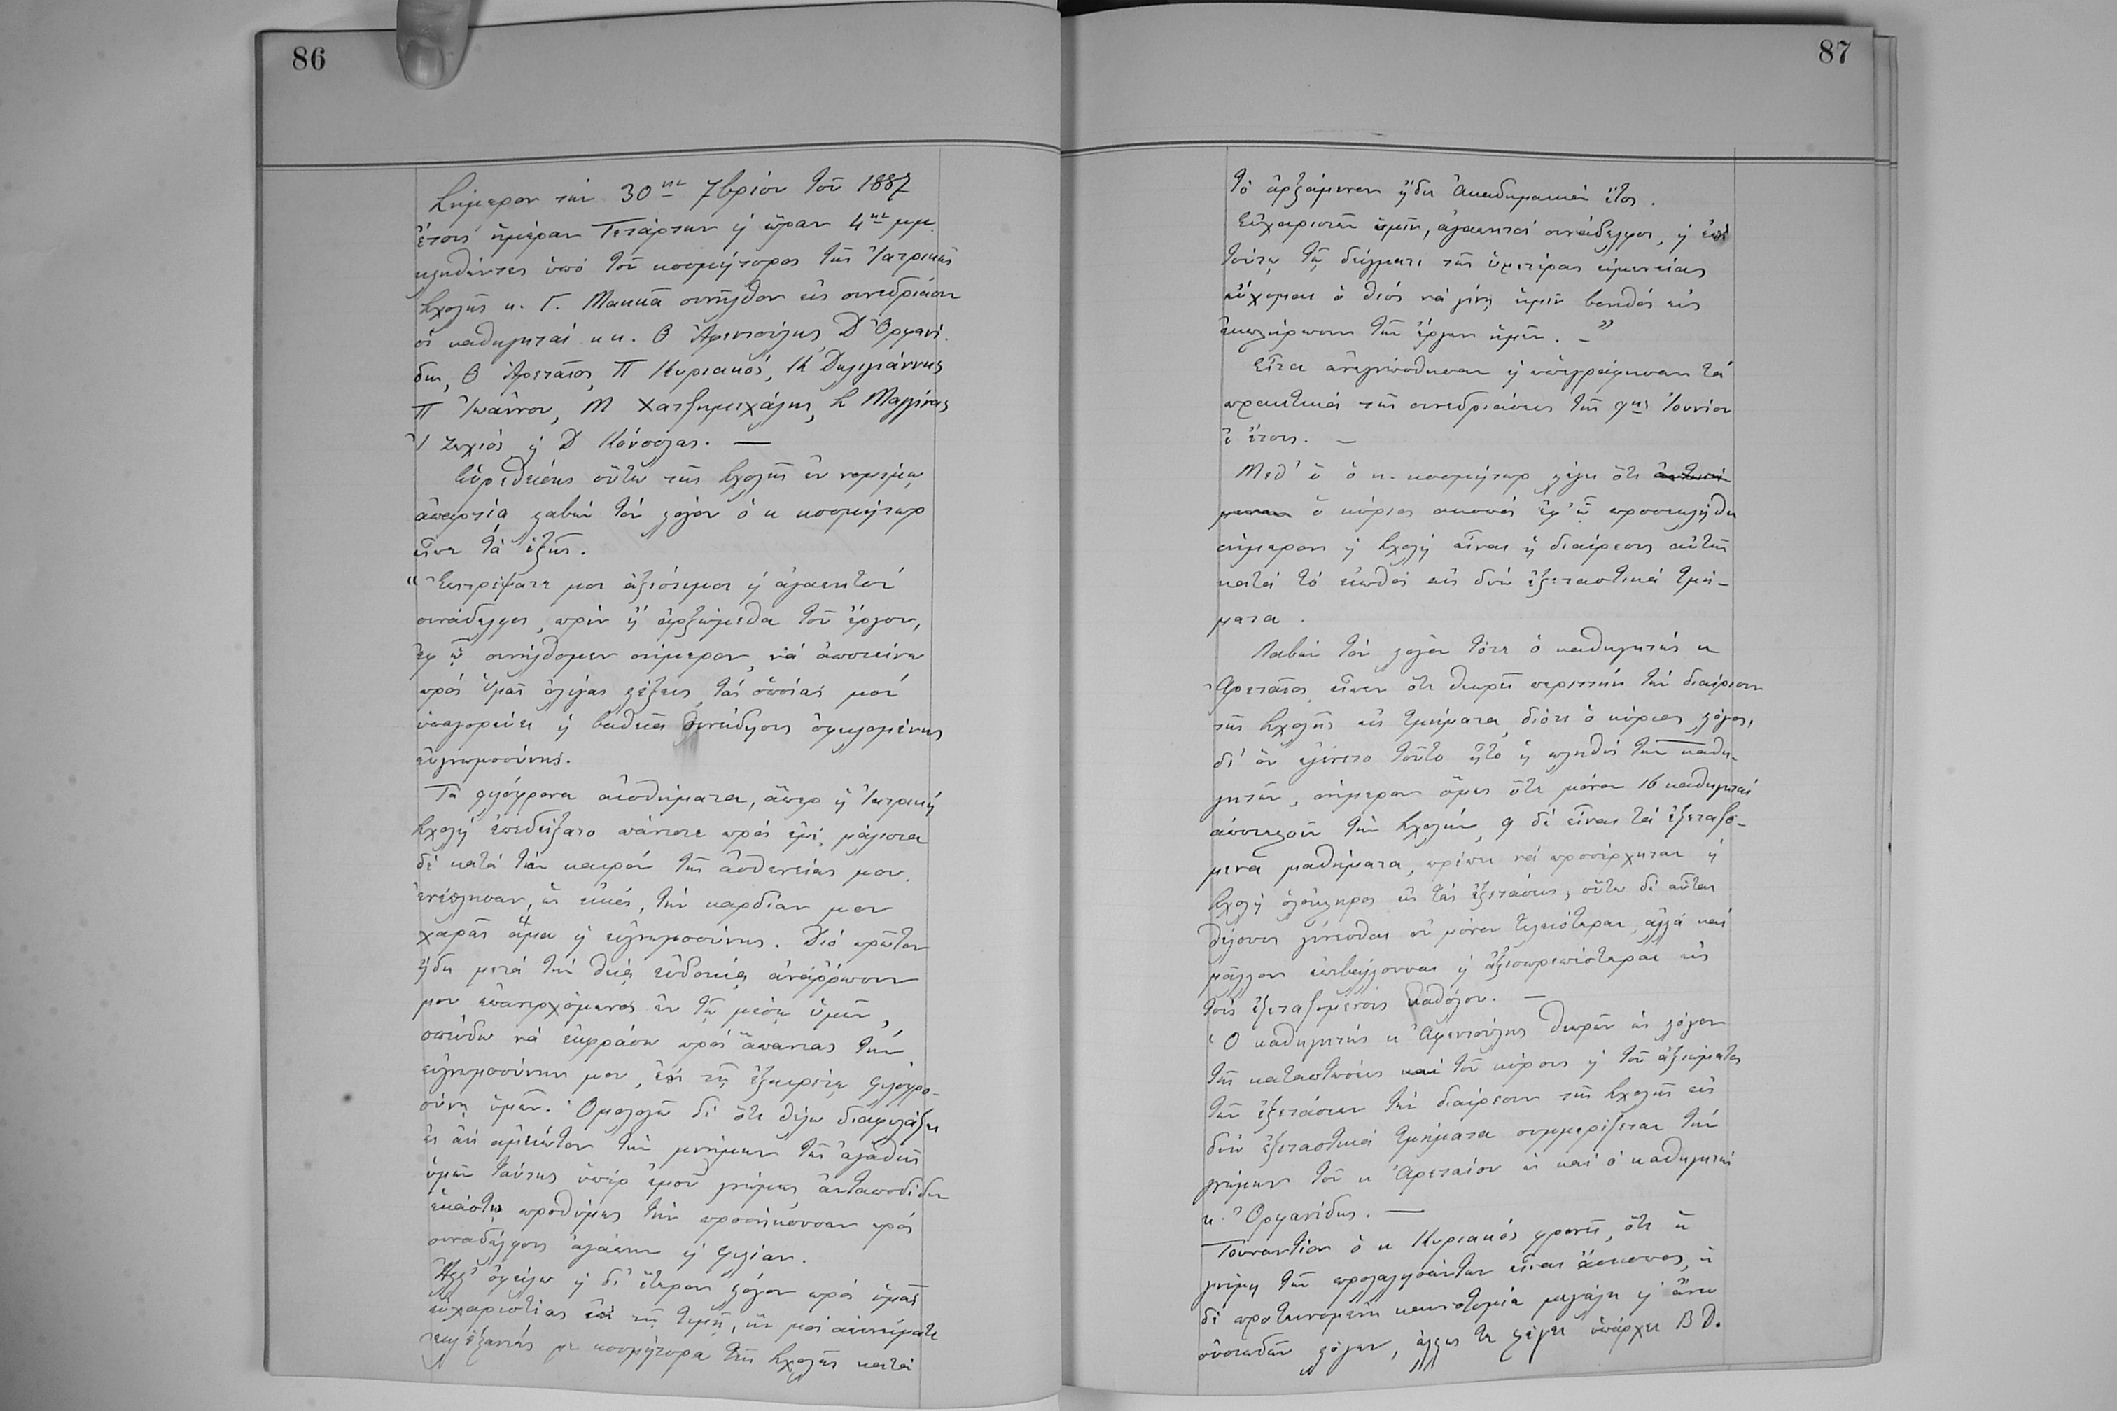 86
Σήμερον τήν 30ην 7βρίου τοῦ 1887
ἔτους ἡμέραν Τετάρτην ϗ ὥραν 4ην μμ.
κληθέντες ὑπό τοῦ κοσμήτορος τῆς Ἰατρικῆς
Σχολῆς κ. Γ. Μακκᾶ συνῆλθον εἰς συνεδρίασιν
οἱ καθηγηταί κκ. Θ Ἀφεντούλης, Δ Ὀρφανί
δης, Θ Ἀρεταῖος, Π Κυριακός, Ν Δηλιγιάννης
Π Ἰωάννου, Μ Χατζημιχάλης, Σ Μαγγίνας
Ἰ Ζωχιός ϗ Δ Κόνσολας. —
Εὑρεθείσης οὕτω τῆς Σχολῆς ἐν νομίμῳ
ἀπαρτίᾳ λαβών τόν λόγον ὁ κ κοσμήτωρ
εἶπε τά ἑξῆς.
" Ἐπιτρέψατέ μοι ἀξιότιμοι ϗ ἀγαπητοί
συνάδελφοι, πρίν ἤ ἀρξώμεθα τοῦ ἔργου,
ἐφ ᾧ συνήλθομεν σήμερον, νά ἀποτείνω
πρός ὑμᾶς ὀλίγας λέξεις, τάς ὁποίας μοί
ὑπαγορεύει ϗ βαθεῖα συνείδησις ὀφειλομένης
εὐγνωμοσύνης.
Τά φιλόφρονα αἰσθήματα, ἅπερ ἡ Ἰατρική
Σχολή ἐπεδείξατο πάντοτε πρός ἐμέ, μάλιστα
δέ κατά τόν καιρόν τῆς ἀσθενείας μου,
ἐνέπλησαν, ὡς εἰκός, τήν καρδίαν μου
χαρᾶς ἅμα ϗ εὐγνωμοσύνης. Διό πρῶτον
ἤδη μετά τήν θείᾳ εὐδοκίᾳ ἀνάρρωσίν
μου ἐπανερχόμενος ἐν τῷ μέσῳ ὑμῶν,
σπεύδω νά ἐκφράσω πρός ἅπαντας τήν
εὐγνωμοσύνην μου, ἐπί τῇ ἐξαιρέτῳ φιλοφρο-
σύνῃ ὑμῶν. Ὁμολογῶ δέ ὅτι θέλω διαφυλάξει
ἐς ἀεί ἀμείωτον τήν μνήμην τῆς ἀγαθῆς
ὑμῶν ταύτης ὑπέρ ἐμοῦ γνώμης ἀνταποδίδων
ἑκάστῳ προθύμως τήν προσήκουσαν πρός
συναδέλφους ἀγάπην ϗ φιλίαν.
Ἀλλ' ὀφείλω ϗ δι' ἕτερον λόγον πρός ὑμᾶς
εὐχαριστίας ἐπί τῇ τιμῇ, ἥν μοί ἀπενείματε
ἐκλέξαντές με κοσμήτορα τῆς Σχολῆς κατά
87
τό ἀρξάμενον ἤδη Ἀκαδημαικόν ἔτος.
Εὐχαριστῶν ὑμῖν, ἀγαπητοί συνάδελφοι, ϗ ἐπί
τούτῳ τῷ δείγματι τῆς ὑμετέρας εὐμενείας
εὔχομαι ὁ θεός νά γίνῃ ἡμῖν βοηθός εἰς
ἐκπλήρωσιν τῶν ἔργων ἡμῶν. – "
Εἶτα ἀνεγνώσθησαν ϗ ὑπεγράφησαν τά
πρακτικά τῆς συνεδριάσεως τῆς 9ης Ἰουνίου
ἐ ἔτους. –
Μεθ' ὅ ὁ κ. κοσμήτωρ λέγει ὅτι
ὁ κύριος σκοπός ἐφ' ᾧ προσεκλήθη
σήμερον ἡ Σχολή εἶναι ἡ διαίρεσις αὐτῆς
κατά τό εἰωθός εἰς δύο ἐξεταστικά τμή-
ματα.
Λαβών τόν λόγον τότε ὁ καθηγητής κ
Ἀρεταῖος εἶπεν ὅτι θεωρεῖ περιττήν τήν διαίρεσιν
τῆς Σχολῆς εἰς τμήματα, διότι ὁ κύριος λόγος,
δι' ὅν ἐγίνετο τοῦτο ἦτο ἡ πληθύς τῶν καθη-
γητῶν, σήμερον ὅμως ὅτε μόνον 16 καθηγηταί
ἀποτελοῦν τήν Σχολήν, 9 δέ εἶναι τά ἐξεταζό-
μενα μαθήματα, πρέπει νά προσέρχηται ἡ
Σχολή ὁλόκληρος εἰς τάς ἐξετάσεις, οὕτω δέ αὗται
θέλουσι γίνεσθαι οὐ μόνον τελειότεραι, ἀλλά καί
μᾶλλον ἐπιβάλλουσαι ϗ ἀξιοπρεπέστεραι εἰς
τούς ἐξεταζομένους καθόλου. –
Ὁ καθηγητής κ Ἀφεντούλης θεωρῶν ὡς λόγον
τῆς καταπτώσεως καί τοῦ κύρους ϗ τοῦ ἀξιώματος
τῶν ἐξετάσεων τήν διαίρεσιν τῆς Σχολῆς εἰς
δύο ἐξεταστικά τμήματα συμμερίζεται τήν
γνώμην τοῦ κ Ἀρεταίου ὡς καί ὁ καθηγητής
κ. Ὀρφανίδης. —
Τοὐναντίον ὁ κ Κυριακός φρονεῖ, ὅτι ἡ
γνώμη τῶν προλαλησάντων εἶναι ἄσκοπος, ἡ
δέ προτεινομένη καινοτομία μεγάλη ϗ ἄνευ
οὐσιωδῶν λόγων, ἄλλως τε λέγει ὑπάρχει Β Δ.